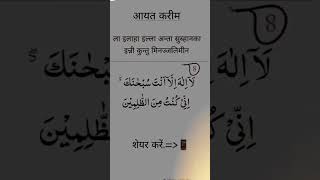 आयत करीम
ला इलाहा इल्ला अन्ता सुब्हानका
इन्नी कुन्तु मिनज्जालिमीन
8
لَآ اِلٰهَ اِلَّآ اَنْتَ سُبْحٰنَكَ ۖ
اِنِّيْ كُنْتُ مِنَ الظّٰلِمِيْنَ
8
शेयर करें.=>